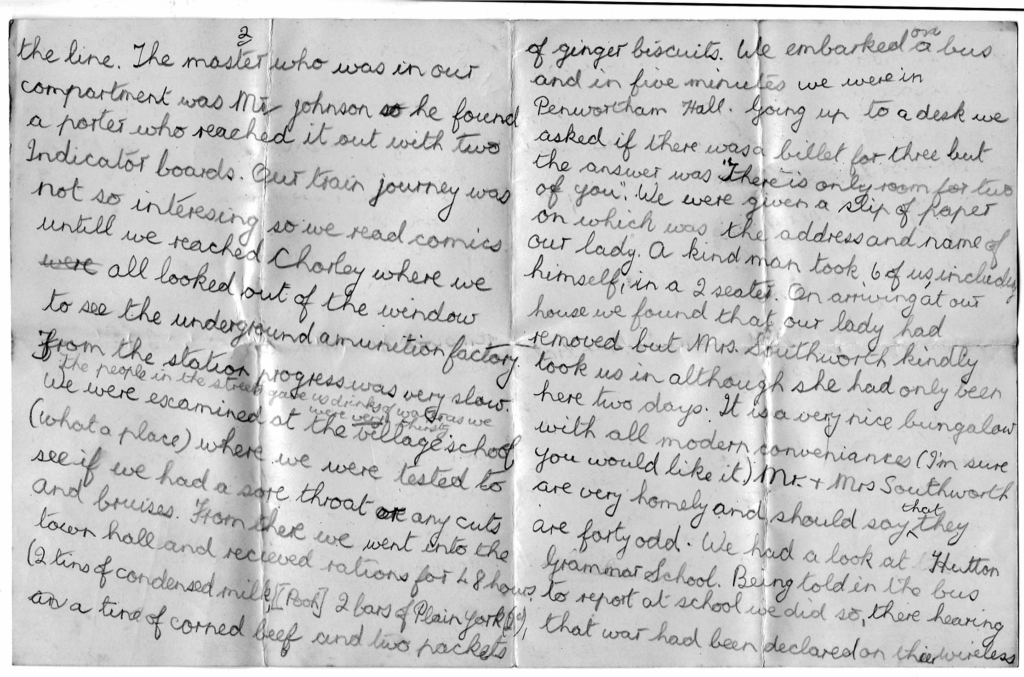 2
the line. The master who was in our
compartment was Mr Johnson so he found
a porter who reached it out with two
Indicator boards. Our train journey was
not so interesing so we read comics
untill we reached Chorley where we
were all looked out of the window
to see the underground amunition factory.
From the station progress was very slow.
The people in the street gave us drinks of water as we
were very thirsty
We were examined at the village school
(what a place) where we were tested to
see if we had a sore throat or any cuts
and bruises. From there we went into the
town hall and recieved rations for 48 hours,
(2 tins of condensed milk, [Pooh] 2 bars of Plain York
a tine of corned beef and two packets
of ginger biscuits. We embarked on a bus
and in five minutes we were in
Penwortham Hall. Going up to a desk we
asked if there was a billet for three but
the answer was "There is only room for two
of you". We were given a slip of paper
on which was the address and name of
our lady. A kind man took 6 of us, including
himself, in a 2 seater. On arriving at our
house we found that our lady had
removed but Mrs. Southworth kindly
took us in although she had only been
here two days. It is a very nice bungalow
with all modern conveniances (I'm sure
you would like it) Mr + Mrs Southworth
are very homely and should say that they
are forty odd. We had a look at Hutton
Grammar School. Being told in the bus
to report at school we did so, there hearing
that war had been declared on wireless